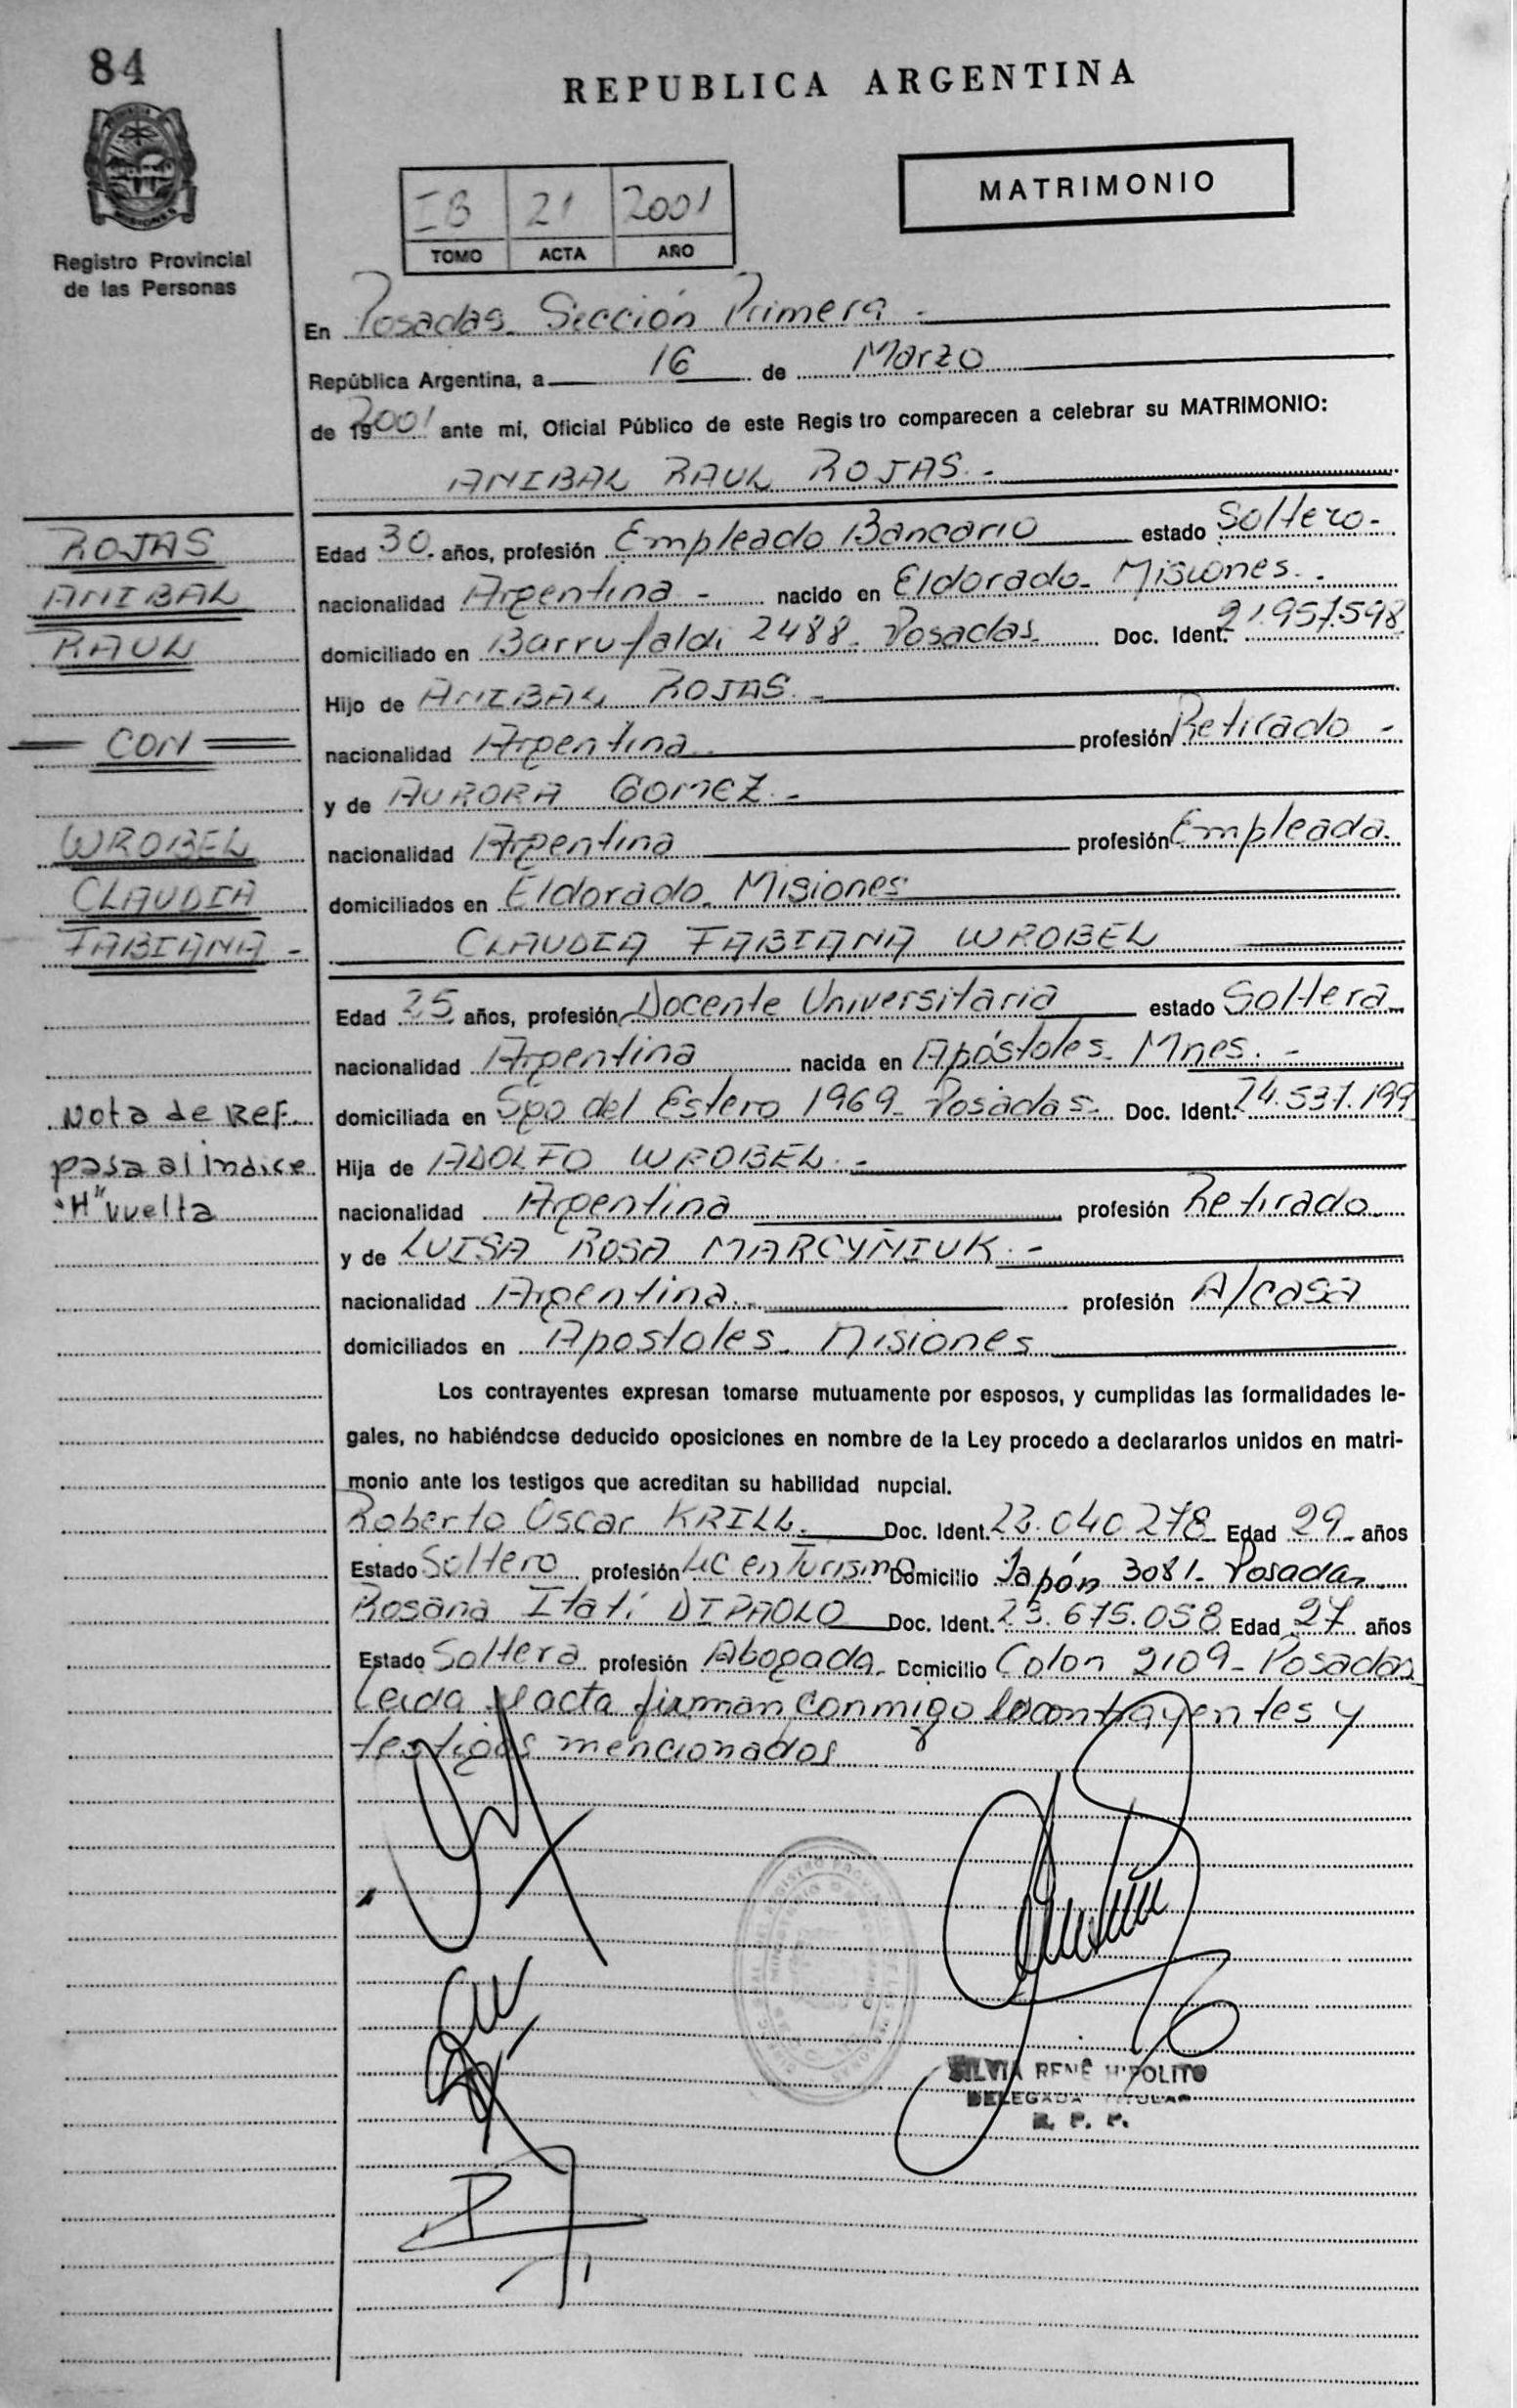 84
REPUBLICA ARGENTINA
MATRIMONIO
IB 21 2001
TOMO ACTA AÑO
Registro Provincial
de las Personas
En Posadas. Sección Primera.-
República Argentina, a 16 de Marzo
de 192001 ante mi, Oficial Público de este Registro comparecen a celebrar su MATRIMONIO:
ANIBAL RAUL ROJAS.-
ROJAS
ANIBAL
RAUL
CON
WROBEL
CLAUDIA
FABIANA-
Nota de REF.
pasa al indice
"H" vuelta
Edad 30. años, profesión Empleado Bancario estado Soltero-
nacionalidad Argentina - nacido en Eldorado- Misiones.-
domiciliado en Barrufaldi 2488- Posadas. Doc. Ident. 21.957.598
Hijo de ANIBAL ROJAS.-
nacionalidad Argentina profesión Retirado-
y de AURORA GOMEZ.-
nacionalidad Argentina profesión Empleada.
domiciliados en Eldorado. Misiones
CLAUDIA FABIANA WROBEL
Edad 25 años, profesión Docente Universitaria estado Soltera
nacionalidad Argentina nacida en Apóstoles- Mnes.-
domiciliada en Sgo del Estero 1969- Posadas- Doc. Ident. 24.537.199
Hija de ADOLFO WROBEL.-
nacionalidad Argentina profesión Retirado.
y de LUISA ROSA MARCYÑIUK.-
nacionalidad Argentina.- profesión A/casa
domiciliados en Apostoles. Misiones
Los contrayentes expresan tomarse mutuamente por esposos, y cumplidas las formalidades le-
gales, no habiéndose deducido oposiciones en nombre de la Ley procedo a declararlos unidos en matri-
monio ante los testigos que acreditan su habilidad nupcial.
Roberto Oscar KRILL. Doc. Ident. 22.040.278 Edad 29 años
Estado Soltero profesión Lic en Turismo Domicilio Japón 3081- Posadas.
Rosana Itatí DIPAOLO Doc. Ident. 23.675.058 Edad 27 años
Estado Soltera profesión Abogada. Domicilio Colon 2109- Posadas
Leida el acta firman conmigo los contrayentes y
testigos mencionados
SILVIA RENÉ HIPOLITO
DELEGADA TITULAR
R. P. P.